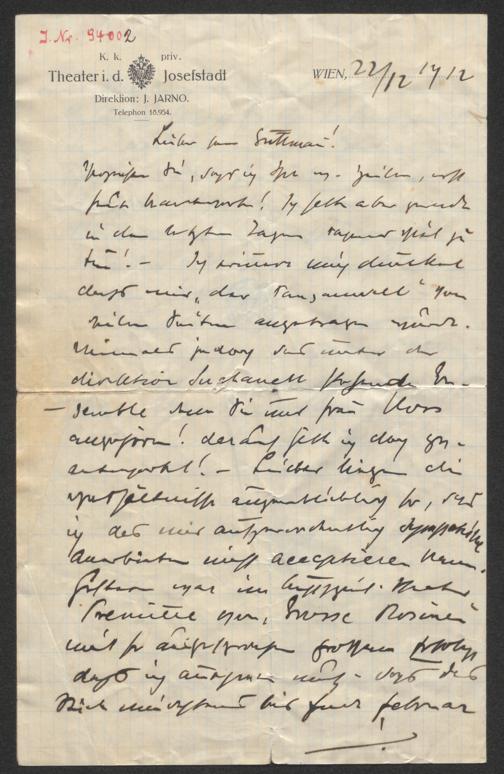 J. Nr. 94002
K. k. priv.
Theater i. d. Josefstadt
Direktion: J. JARNO.
Telephon 18.954.
WIEN, 22/12 1912
Lieber Herr Guttmann!
Verzeihen Sie, daß ich Ihre Zeilen, erst
heute beantworte! Ich hatte aber gerade
in den letzten Tagen viel zu
tun! – Ich erinnere mich dunkel
daß mir „der Tanzanwalt" von
vielen Seiten angetragen wurde.
Niemals jedoch das unter der
direktion stehende En-
– semble dem Sie und Frau
angehören! darauf hätte ich doch ge-
antwortet! – Leider liegen die
Verhältnisse augenblicklich so, daß
ich das mir außerordentlich sympathische
Anerbieten nicht acceptieren kann.
Gestern war im
Première von „Grosse Rosinen"
mit so grossem Erfolge
daß ich annehmen muß – daß das
Stück mindestens bis Ende februar
!